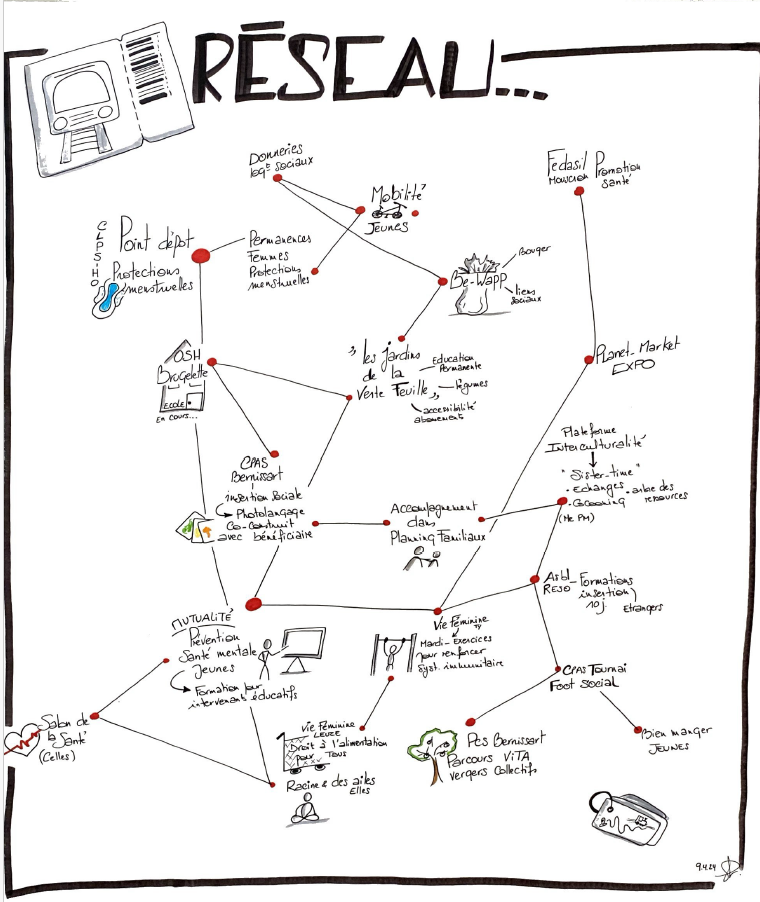 RÉSEAU...
Donneries
logts sociaux
Mobilité
Jeunes
Fedasil Promotion
Mouscron santé
CLPS-HO
Point dépôt
Protections
menstruelles
Permanences
Femmes
Protections
menstruelles
Be-Wapp
Bouger
liens
sociaux
OSH
Brugelette
ECOLE
En cours...
"les jardins
de la
Verte Feuille"
Education
Permanente
légumes
accessibilité
abonnements
Planet-Market
EXPO
Plateforme
Interculturalité
"Sister-time"
• Echanges
• Cocooning
• arbre des
ressources
CPAS
Bernissart
insertion sociale
Photolangage
Co-construit
avec bénéficiaire
Accompagnement
dans
Planning Familiaux
Asbl
RESO
Formations
insertion
10 j.
Etrangers
MUTUALITÉ
Prévention
Santé mentale
Jeunes
Formation pour
intervenants éducatifs
Vie Féminine
Mardi - Exercices
pour renforcer
syst. immunitaire
CPAS Tournai
Foot Social
Salon de
la Santé
(Celles)
Vie féminine
LEUZE
Droit à l'alimentation
pour TOUS
Racine & des ailes
Elles
Pcs Bernissart
Parcours ViTA
vergers collectifs
Bien manger
JEUNES
9.4.24